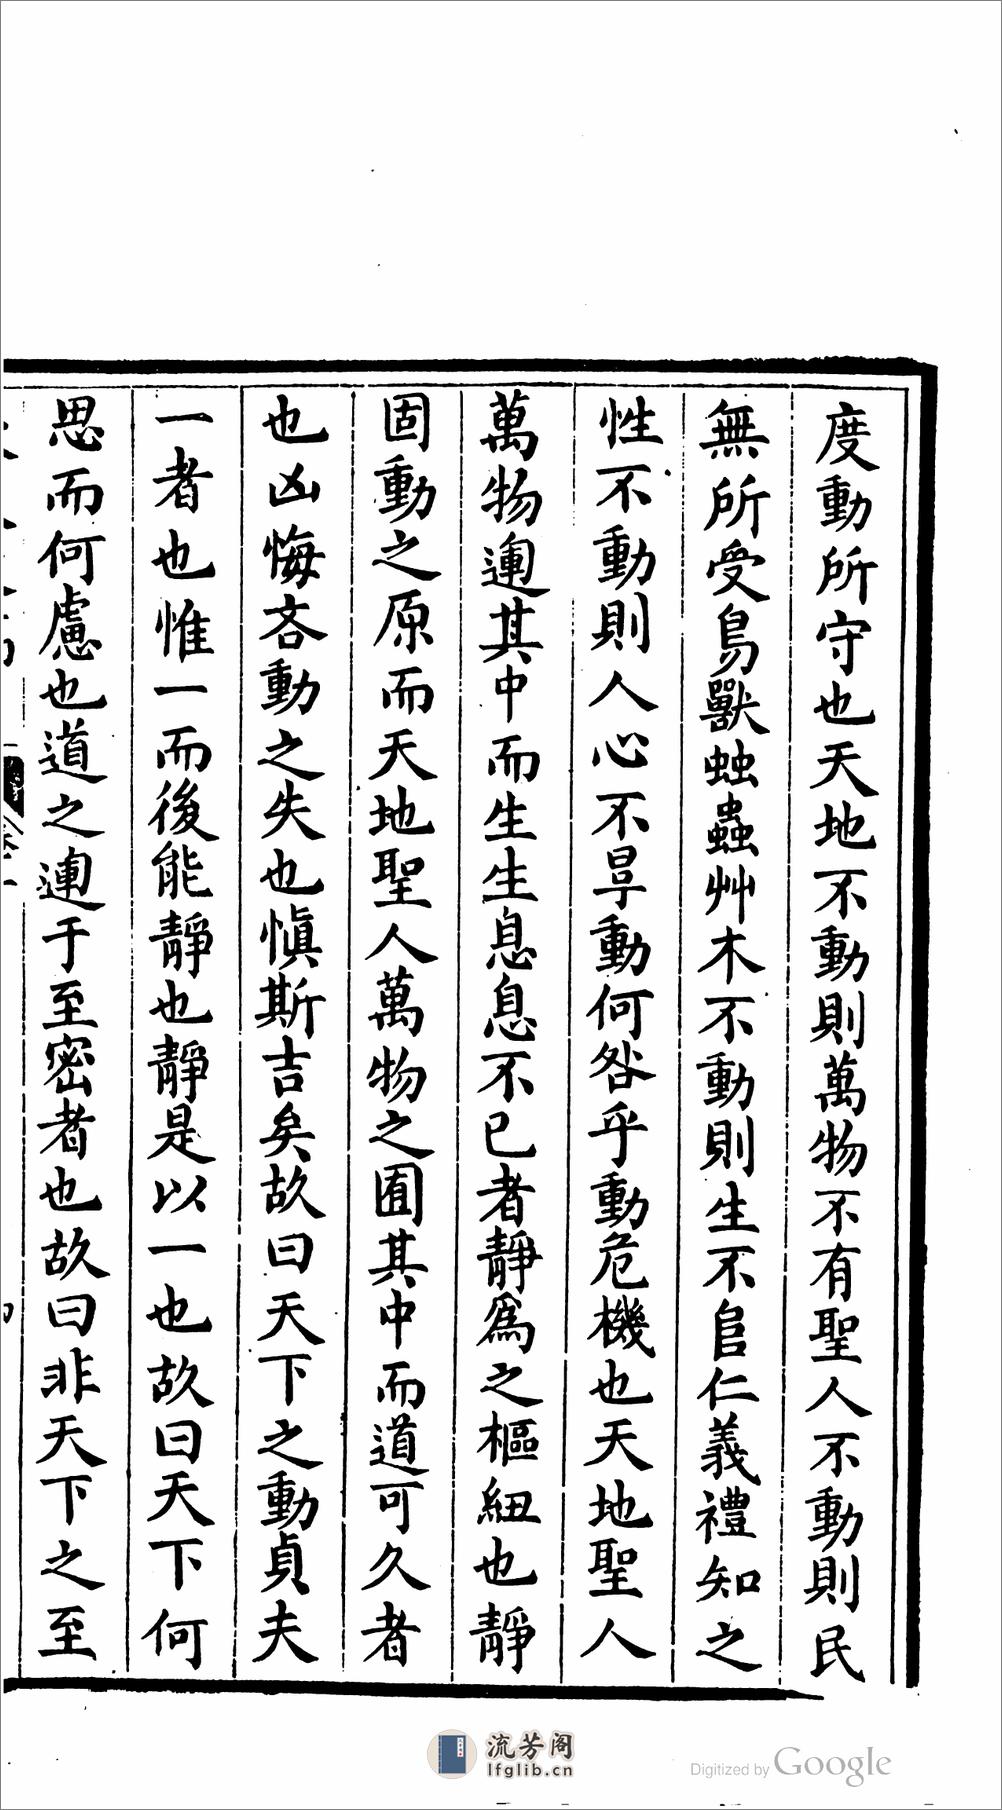 度動所守也天地不動則萬物不有聖人不動則民
無所受鳥獸䖝蟲艸木不動則生不㠯仁義禮知之
性不動則人心不㝵動何咎乎動危機也天地聖人
萬物運其中而生生息息不已者靜爲之樞紐也靜
固動之原而天地聖人萬物之囿其中而道可久者
也凶悔吝動之失也愼斯吉矣故曰天下之動貞夫
一者也惟一而後能靜也靜是以一也故曰天下何
思而何慮也道之運于至密者也故曰非天下之至
流芳阁
lfglib.cn
Digitized by Google